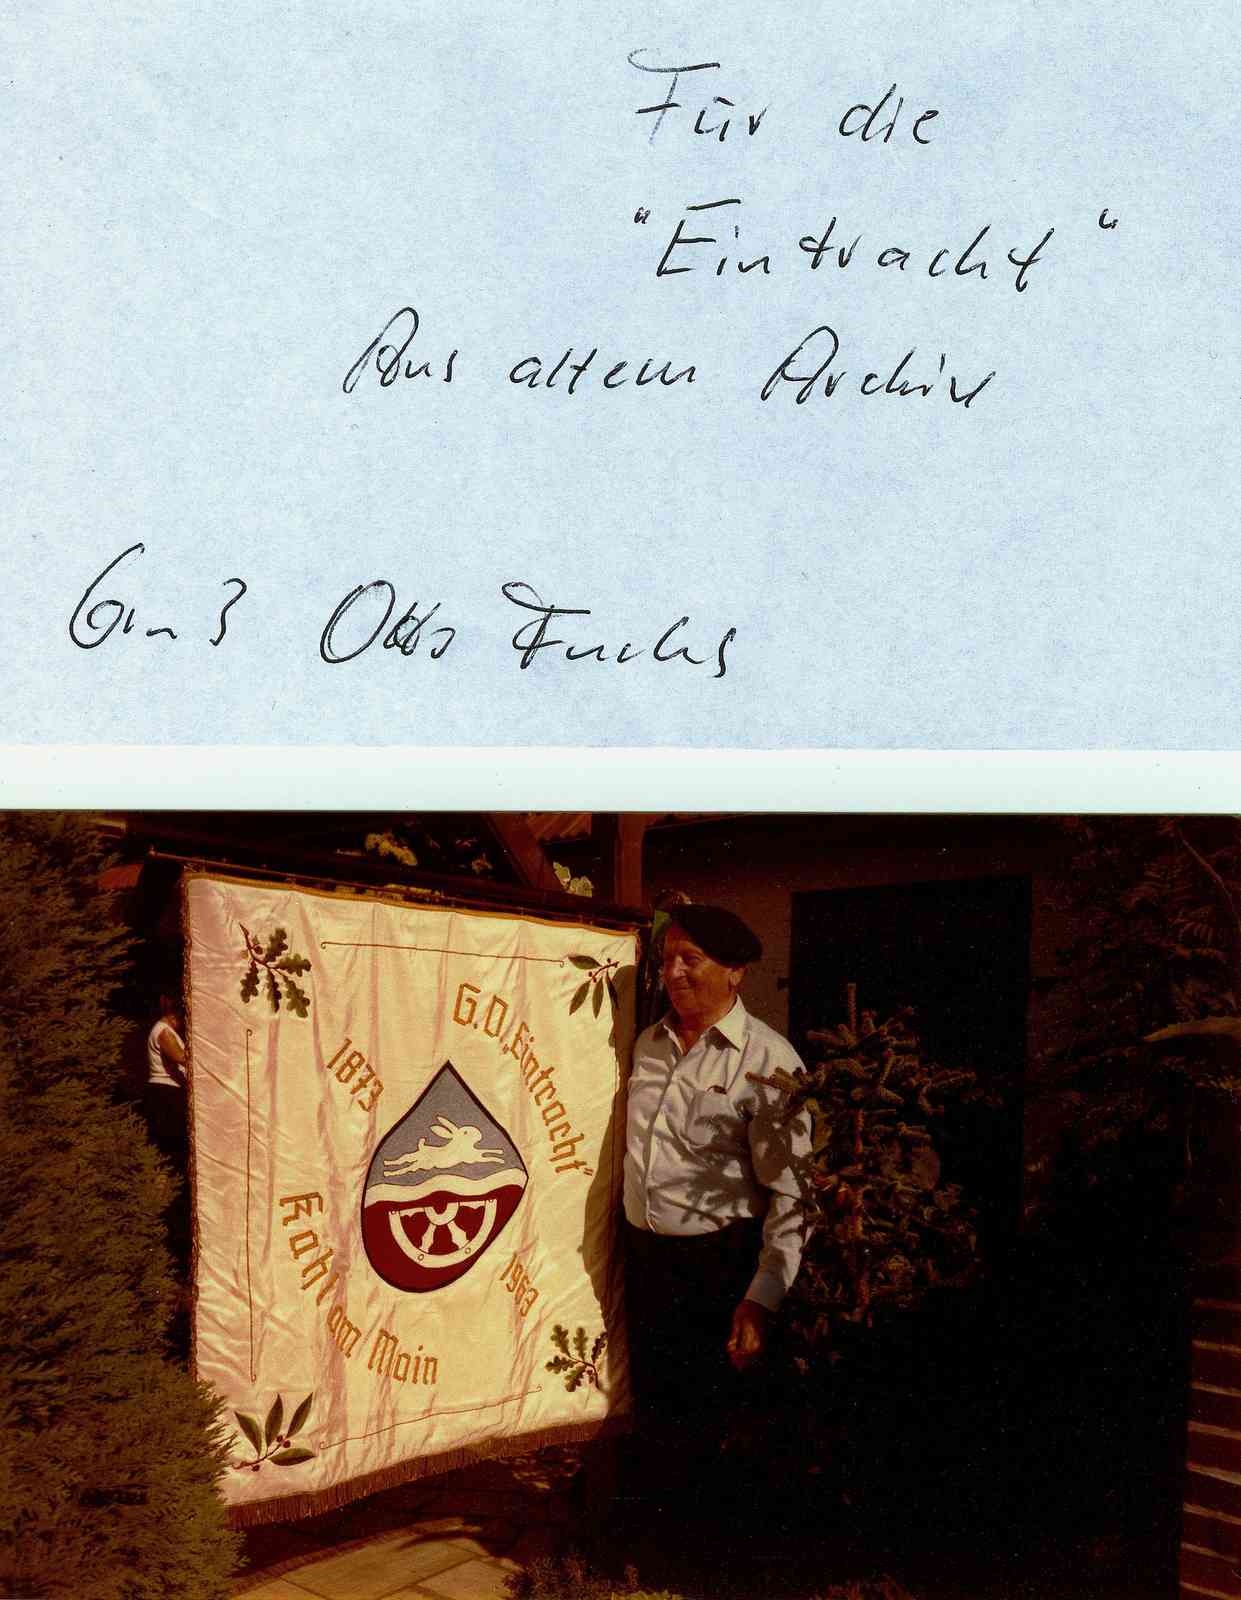 Für die
"Eintracht"
Aus altem Archiv
Gruß Otto Fuchs
1873
G.O. „Eintracht"
Kahl am Main
1963